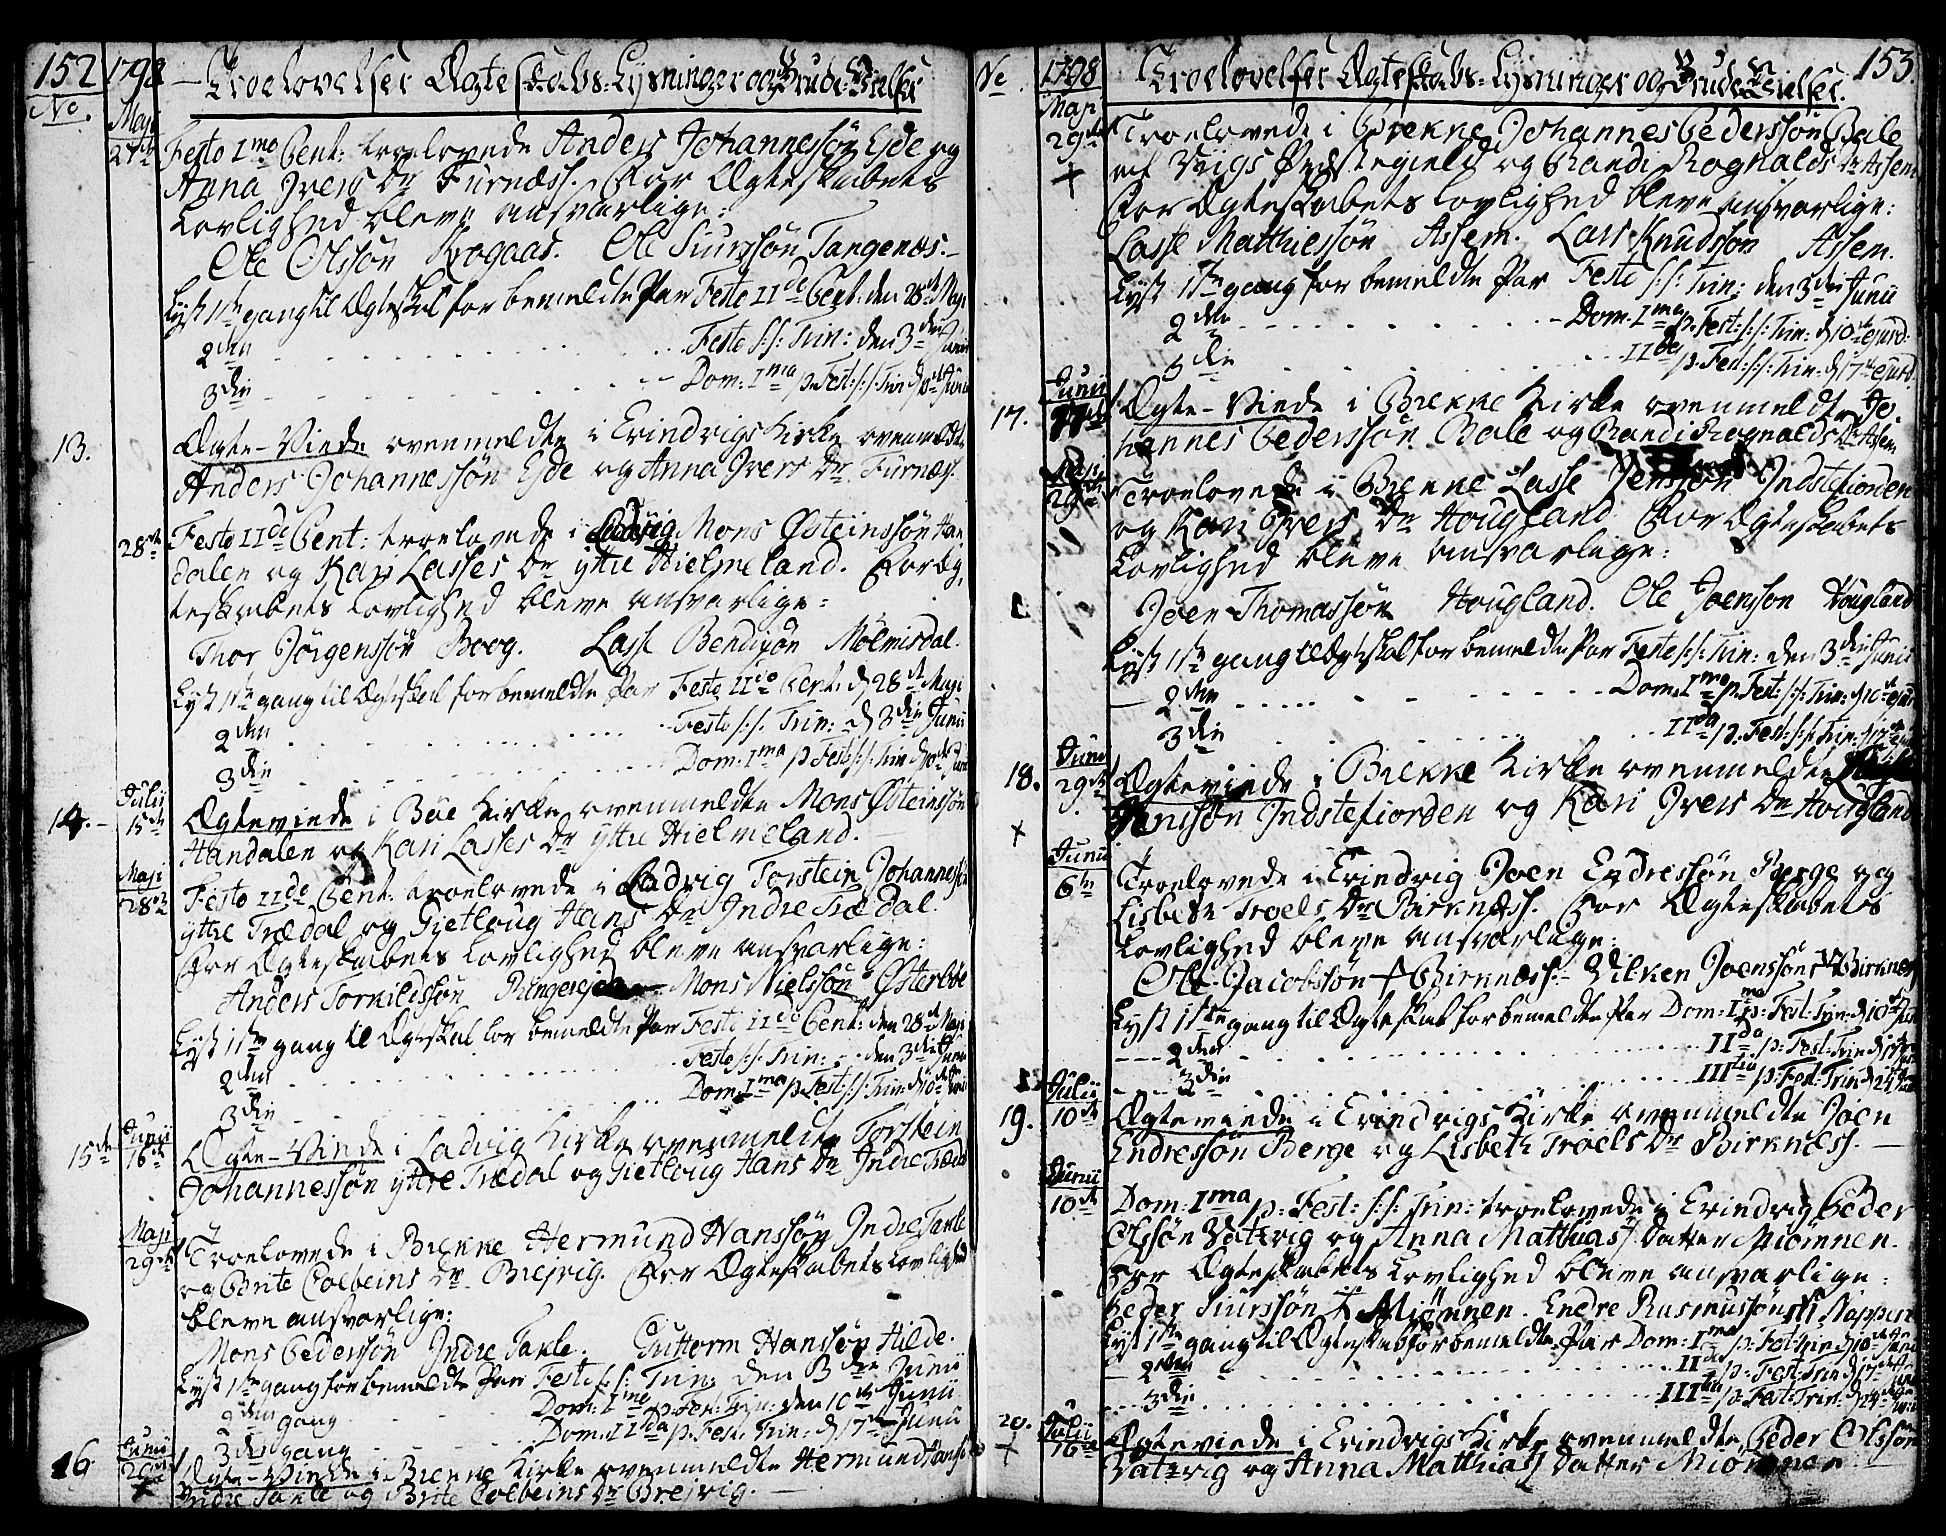 152 1798 Troelovelser Ægteskabs-Lysninger og Brude-Vielser
No. Maji
27de Festo Imo Pent: troelovede Anders Johannessøn Eide og
Anna Ivers Dr Furnæss. For Ægteskabets
Lovlighed bleve ansvarlige:
Ole Olssøn Kogaas. Ole Siurssøn Tangenæs.
Lyst 1ste gang til Ægteskab for bemeldte Par Festo IIdo Pent: den 28de Maji
2den - - - Festo s: s: Trin: den 3die Junii
3die - - - Dom: Ima p. Fest: s: s: Trin d 10de Junii
13. Ægte-Viede ovenmeldte i Evindvigs Kirke ovenmeldte
Anders Johannessøn Eide og Anna Ivers Dr Furnæss.
28de Festo IIdo Pent: troelovede i Ladvig Mons Østeinssøn Han-
dalen og Kari Lasses Dr yttre Hielmeland. For Æg-
teskabets Lovlighed bleve ansvarlige:
Thor Jørgenssøn Boog. Lasse Bendixøn Mølmisdal.
Lyst 1ste gang til Ægteskab for bemeldte Par Festo IIdo Pent: d 28de Maji
2den - - - Festo s: s: Trin: d 3die Junii
3die - - - Dom: Ima p. Fest: s: s: Trin d 10de Junii
Julii
14. 15de Ægteviede i Bøe Kirke ovenmeldte Mons Østeinssøn
Handalen og Kari Lasses Dr yttre Hielmeland.
Maji
28de Festo IIdo Pent: troelovede i Ladvig Torstein Johannessøn
yttre Trædal og Gietloug Hans Dr Indre Trædal.
For Ægteskabets Lovlighed bleve ansvarlige:
Anders Torkildssøn Mons Nielssøn Østerbøe
Lyst 1ste gang til Ægteskab for bemeldte Par Festo IIdo Pent: den 28de Maji
2den - - - Festo s: s: Trin: den 3die Junii
3die - - - Dom: Ima p. Fest: s: s: Trin d 10de Junii
Junii
15de 16de Ægte-Viede i Ladvig Kirke ovenmeldte Torstein
Johannessøn yttre Trædal og Gietloug Hans Dr Indre Trædal
Maji
29de Troelovede i Brekke Hermund Hanssøn Indre Takle
og Brite Colbeins Dr Brejvig. For Ægteskabets Lovlighed
bleve ansvarlige:
Mons Pederssøn Indre Takle. Guttorm Hanssøn Hilde.
Lyst 1ste gang for bemeldte Par Festo s: s: Trin: den 3die Junii
2den gang - - - Dom: Ima p: Fest: Trin: den 10de Junii
3die gang - - - Dom: IIda p. Fest: Trin: d 17de Junii
Junii
16 Ægte-Viede i Brekke Kirke ovenmeldte Hermund Hanssøn
Indre Takle og Brite Colbeins Dr Brejvig.
No 1798 Troelovelser Ægteskabs-Lysninger og Brude-Vielser. 153.
Maji
29de Troelovede i Brekke Johannes Pederssøn Bale
af Viigs Præstegield og Randi Rognalds Dr Assem
For Ægteskabets Lovlighed bleve ansvarlige:
Lasse Matthiessøn Assem. Lars Knudssøn Assem.
Lyst 1ste gang for bemeldte Par Festo s: s: Trin: den 3die Junii
2den - - - Dom: Ima p. Fest: s: s: Trin: d 10de ejusd.
3die - - - IIda p. Fest: s: s: Trin: d 17de ejusd.
Junii
17. Ægte-Viede i Brekke Kirke ovenmeldte Jo-
hannes Pederssøn Bale og Randi Rognalds Dr Assem
Maji
29de Troelovede i Brekke Lasse Jenssøn Indstefiorden
og Kari Ivers Dr Hougland. For Ægteskabets
Lovlighed bleve ansvarlige:
Joen Thomassøn Hougland. Ole Joenssøn Hougland
Lyst 1ste gang til Ægteskab for bemeldte Par Festo s: s: Trin: den 3die Junii
2den - - - Dom: Ima p. Fest: s: s: Trin: d 10de ejusd
3die - - - IIda p. Fest: s: s: Trin: d 17de ejusd
Junii
18. 29de Ægteviede i Brekke Kirke ovenmeldte Lasse
Jenssøn Indstefiorden og Kari Ivers Dr Hougland
Junii
6te Troelovede i Evindvig Joen Endressøn Berge og
Lisbeth Troels Dr Birknæss. For Ægteskabets
Lovlighed bleve ansvarlige:
Ole Jacobssøn Birknæss - Vilken Joenssøn Birknes
Lyst 1ste gang til Ægteskab for bemeldte Par Dom: Ima p: Fest: Trin: d 10de Junii
2den - - - IIda p: Fest: Trin d 17de
3die - - - IIItia p: Fest: Trin d 24de
Julii
19. 10de Ægteviede i Evindvigs Kirke ovenmeldte Joen
Endressøn Berge og Lisbeth Troels Dr Birknæss.
Junii
10de Dom: Ima p: Fest: s: s: Trin: troelovede i Evindvig Peder
Olssøn Vatzvig og Anna Matthias Datter Miømnen.
For Ægteskabets Lovlighed bleve ansvarlige:
Peder Siurssøn Miømnen. Endre Rasmussøn Nappen
Lyst 1ste gang til Ægteskab for bemeldte Par Dom: Ima p: Fest: Trin d 10de Junii
2den - - - IIda p: Fest: Trin d 17de
3die - - - IIItia p: Fest: Trin: d 24de
Julii
20. 16de Ægteviede i Evindvigs Kirke ovenmeldte Peder Olssøn
Vatzvig og Anna Matthias Datter Miømnen